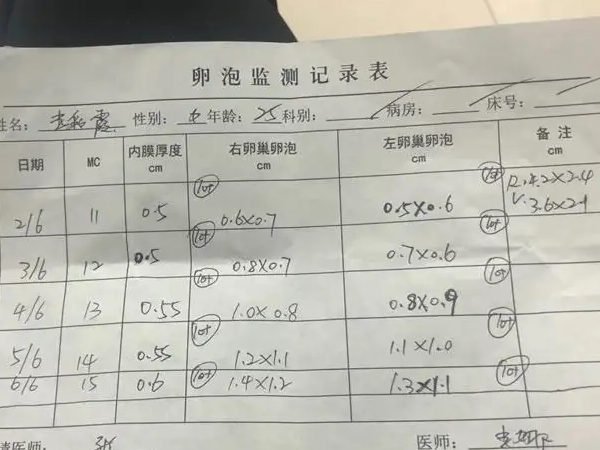 卵泡监测记录表
姓名: 性别: 女 年龄: 25 科别: 病房: 床号:
日期 MC 内膜厚度 cm 右卵巢卵泡 cm 左卵巢卵泡 cm 备注 cm
2/6 11 0.5 10+ 0.6×0.7 10+ 0.5×0.6 R.4.2×2.4
3.6×2.1
3/6 12 0.5 10+ 0.8×0.7 10+ 0.7×0.6
4/6 13 0.55 10+ 1.0×0.8 10+ 0.8×0.9
5/6 14 0.55 10+ 1.2×1.1 10+ 1.1×1.0
6/6 15 0.6 10+ 1.4×1.2 10+ 1.3×1.1
请医师: 医师: